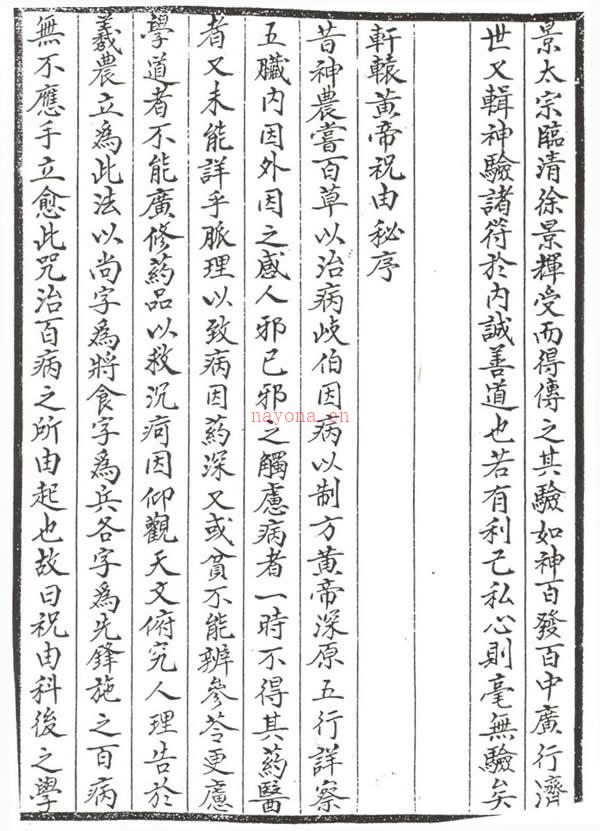 景太宗臨清徐景輝受而得傳之其驗如神百發百中廣行濟
世又輯神驗諸符於内誠善道也若有利己私心則毫無驗矣
軒轅黃帝祝由秘序
昔神農嘗百草以治病歧伯因病以制方黃帝深原五行詳察
五臟内因外因之感人邪己邪之觸慮病者一時不得其药醫
者又未能詳乎脈理以致病因药深又或貧不能辨參苓更慮
學道者不能廣修药品以救沉疴因仰觀天文俯究人理告於
羲農立為此法以尚字為將食字為兵各字為先鋒施之百病
無不應手立愈此咒治百病之所由起也故曰祝由科後之學
nayona.cn